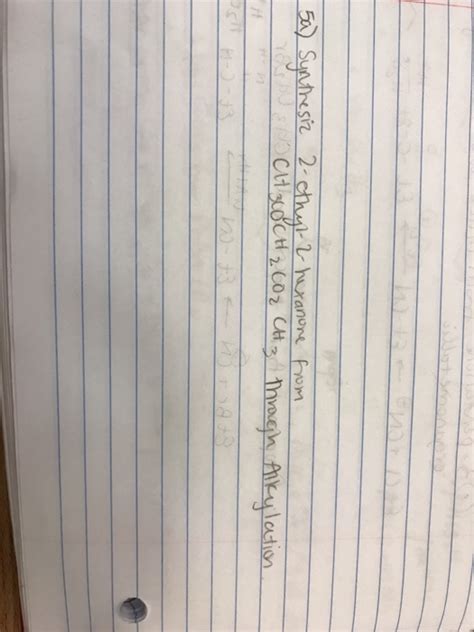 5a) Synthesiz 2-ethyl-2 hexanone from
CH3COCH2CO2 CH3 through Alkylation.